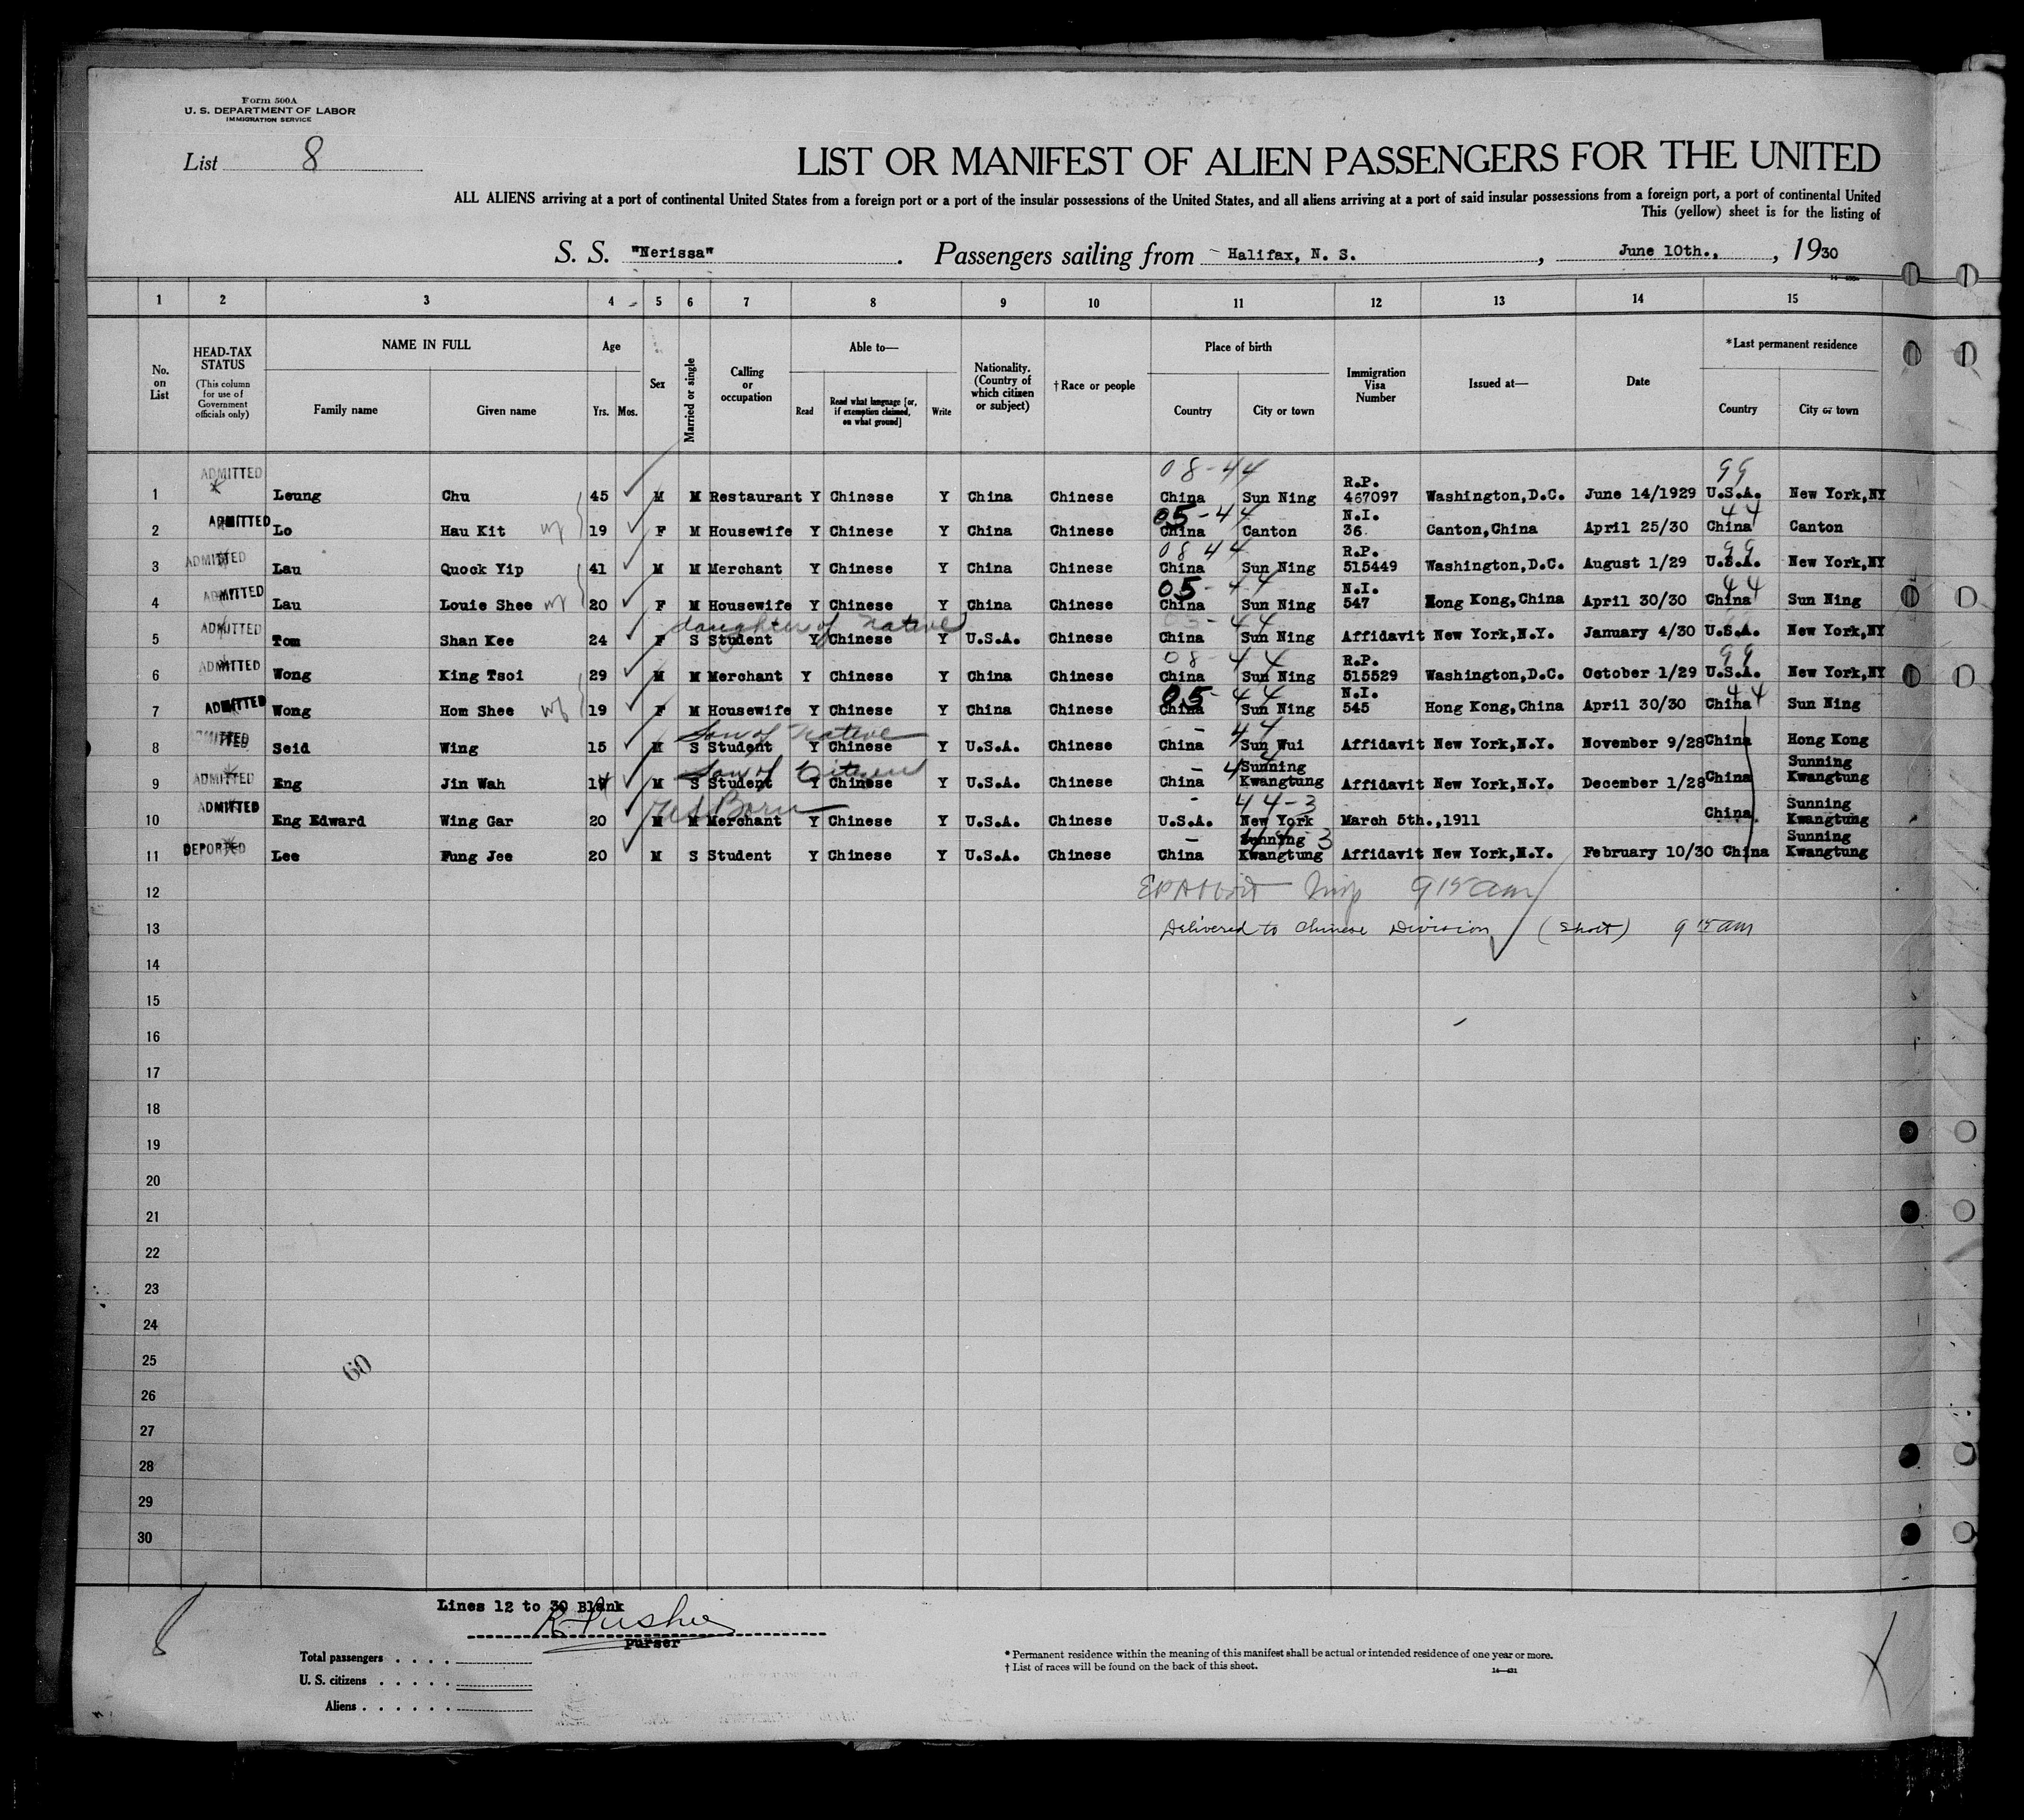 Form 500A
U. S. DEPARTMENT OF LABOR
IMMIGRATION SERVICE
List 8
LIST OR MANIFEST OF ALIEN PASSENGERS FOR THE UNITED
ALL ALIENS arriving at a port of continental United States from a foreign port or a port of the insular possessions of the United States, and all aliens arriving at a port of said insular possessions from a foreign port, a port of continental United
This (yellow) sheet is for the listing of
S. S. "Nerissa". Passengers sailing from Halifax, N. S., June 10th., 1930
1 2 3 4 5 6 7 8 9 10 11 12 13 14 15
No. on List
HEAD-TAX STATUS (This column for use of Government officials only)
NAME IN FULL Family name Given name
Age Yrs. Mos.
Sex
Married or single
Calling or occupation
Able to— Read Read what language [or, if exemption claimed, on what ground] Write
Nationality. (Country of which citizen or subject)
†Race or people
Place of birth Country City or town
Immigration Visa Number
Issued at—
Date
*Last permanent residence Country City or town
08-44 99
1 ADMITTED Leung Chu 45 M M Restaurant Y Chinese Y China Chinese China Sun Ning R.P. 467097 Washington,D.C. June 14/1929 U.S.A. New York,NY
05-44 44
2 ADMITTED Lo Hau Kit wf 19 F M Housewife Y Chinese Y China Chinese China Canton N.I. 36 Canton,China April 25/30 China Canton
08 44 99
3 ADMITTED Lau Quock Yip 41 M M Merchant Y Chinese Y China Chinese China Sun Ning R.P. 515449 Washington,D.C. August 1/29 U.S.A. New York,NY
05-44 44
4 ADMITTED Lau Louie Shee wf 20 F M Housewife Y Chinese Y China Chinese China Sun Ning N.I. 547 Hong Kong,China April 30/30 China Sun Ning
daughter of native 44
5 ADMITTED Tom Shan Kee 24 F S Student Y Chinese Y U.S.A. Chinese China Sun Ning Affidavit New York,N.Y. January 4/30 U.S.A. New York,NY
08-44 99
6 ADMITTED Wong King Tsoi 29 M M Merchant Y Chinese Y China Chinese China Sun Ning R.P. 515529 Washington,D.C. October 1/29 U.S.A. New York,NY
05-44 44
7 ADMITTED Wong Hom Shee wf 19 F M Housewife Y Chinese Y China Chinese China Sun Ning N.I. 545 Hong Kong,China April 30/30 China Sun Ning
Son of Native - 44
8 ADMITTED Seid Wing 15 M S Student Y Chinese Y U.S.A. Chinese China Sun Wui Affidavit New York,N.Y. November 9/28 China Hong Kong
Son of Citizen - 44
9 ADMITTED Eng Jin Wah M S Student Y Chinese Y U.S.A. Chinese China Sunning Kwangtung Affidavit New York,N.Y. December 1/28 China Sunning Kwangtung
US Born - 44-3
10 ADMITTED Eng Edward Wing Gar 20 M M Merchant Y Chinese Y U.S.A. Chinese U.S.A. New York March 5th.,1911 China Sunning Kwangtung
- 44-3
11 DEPORTED Lee Fung Jee 20 M S Student Y Chinese Y U.S.A. Chinese China Sunning Kwangtung Affidavit New York,N.Y. February 10/30 China Sunning Kwangtung
12 Insp 9 15 am
13 Delivered to Chinese Division (Short) 9 15 am
14
15
16
17
18
19
20
21
22
23
24
25
60
26
27
28
29
30
Lines 12 to 30 Blank
purser
Total passengers
U. S. citizens
Aliens
* Permanent residence within the meaning of this manifest shall be actual or intended residence of one year or more.
† List of races will be found on the back of this sheet.